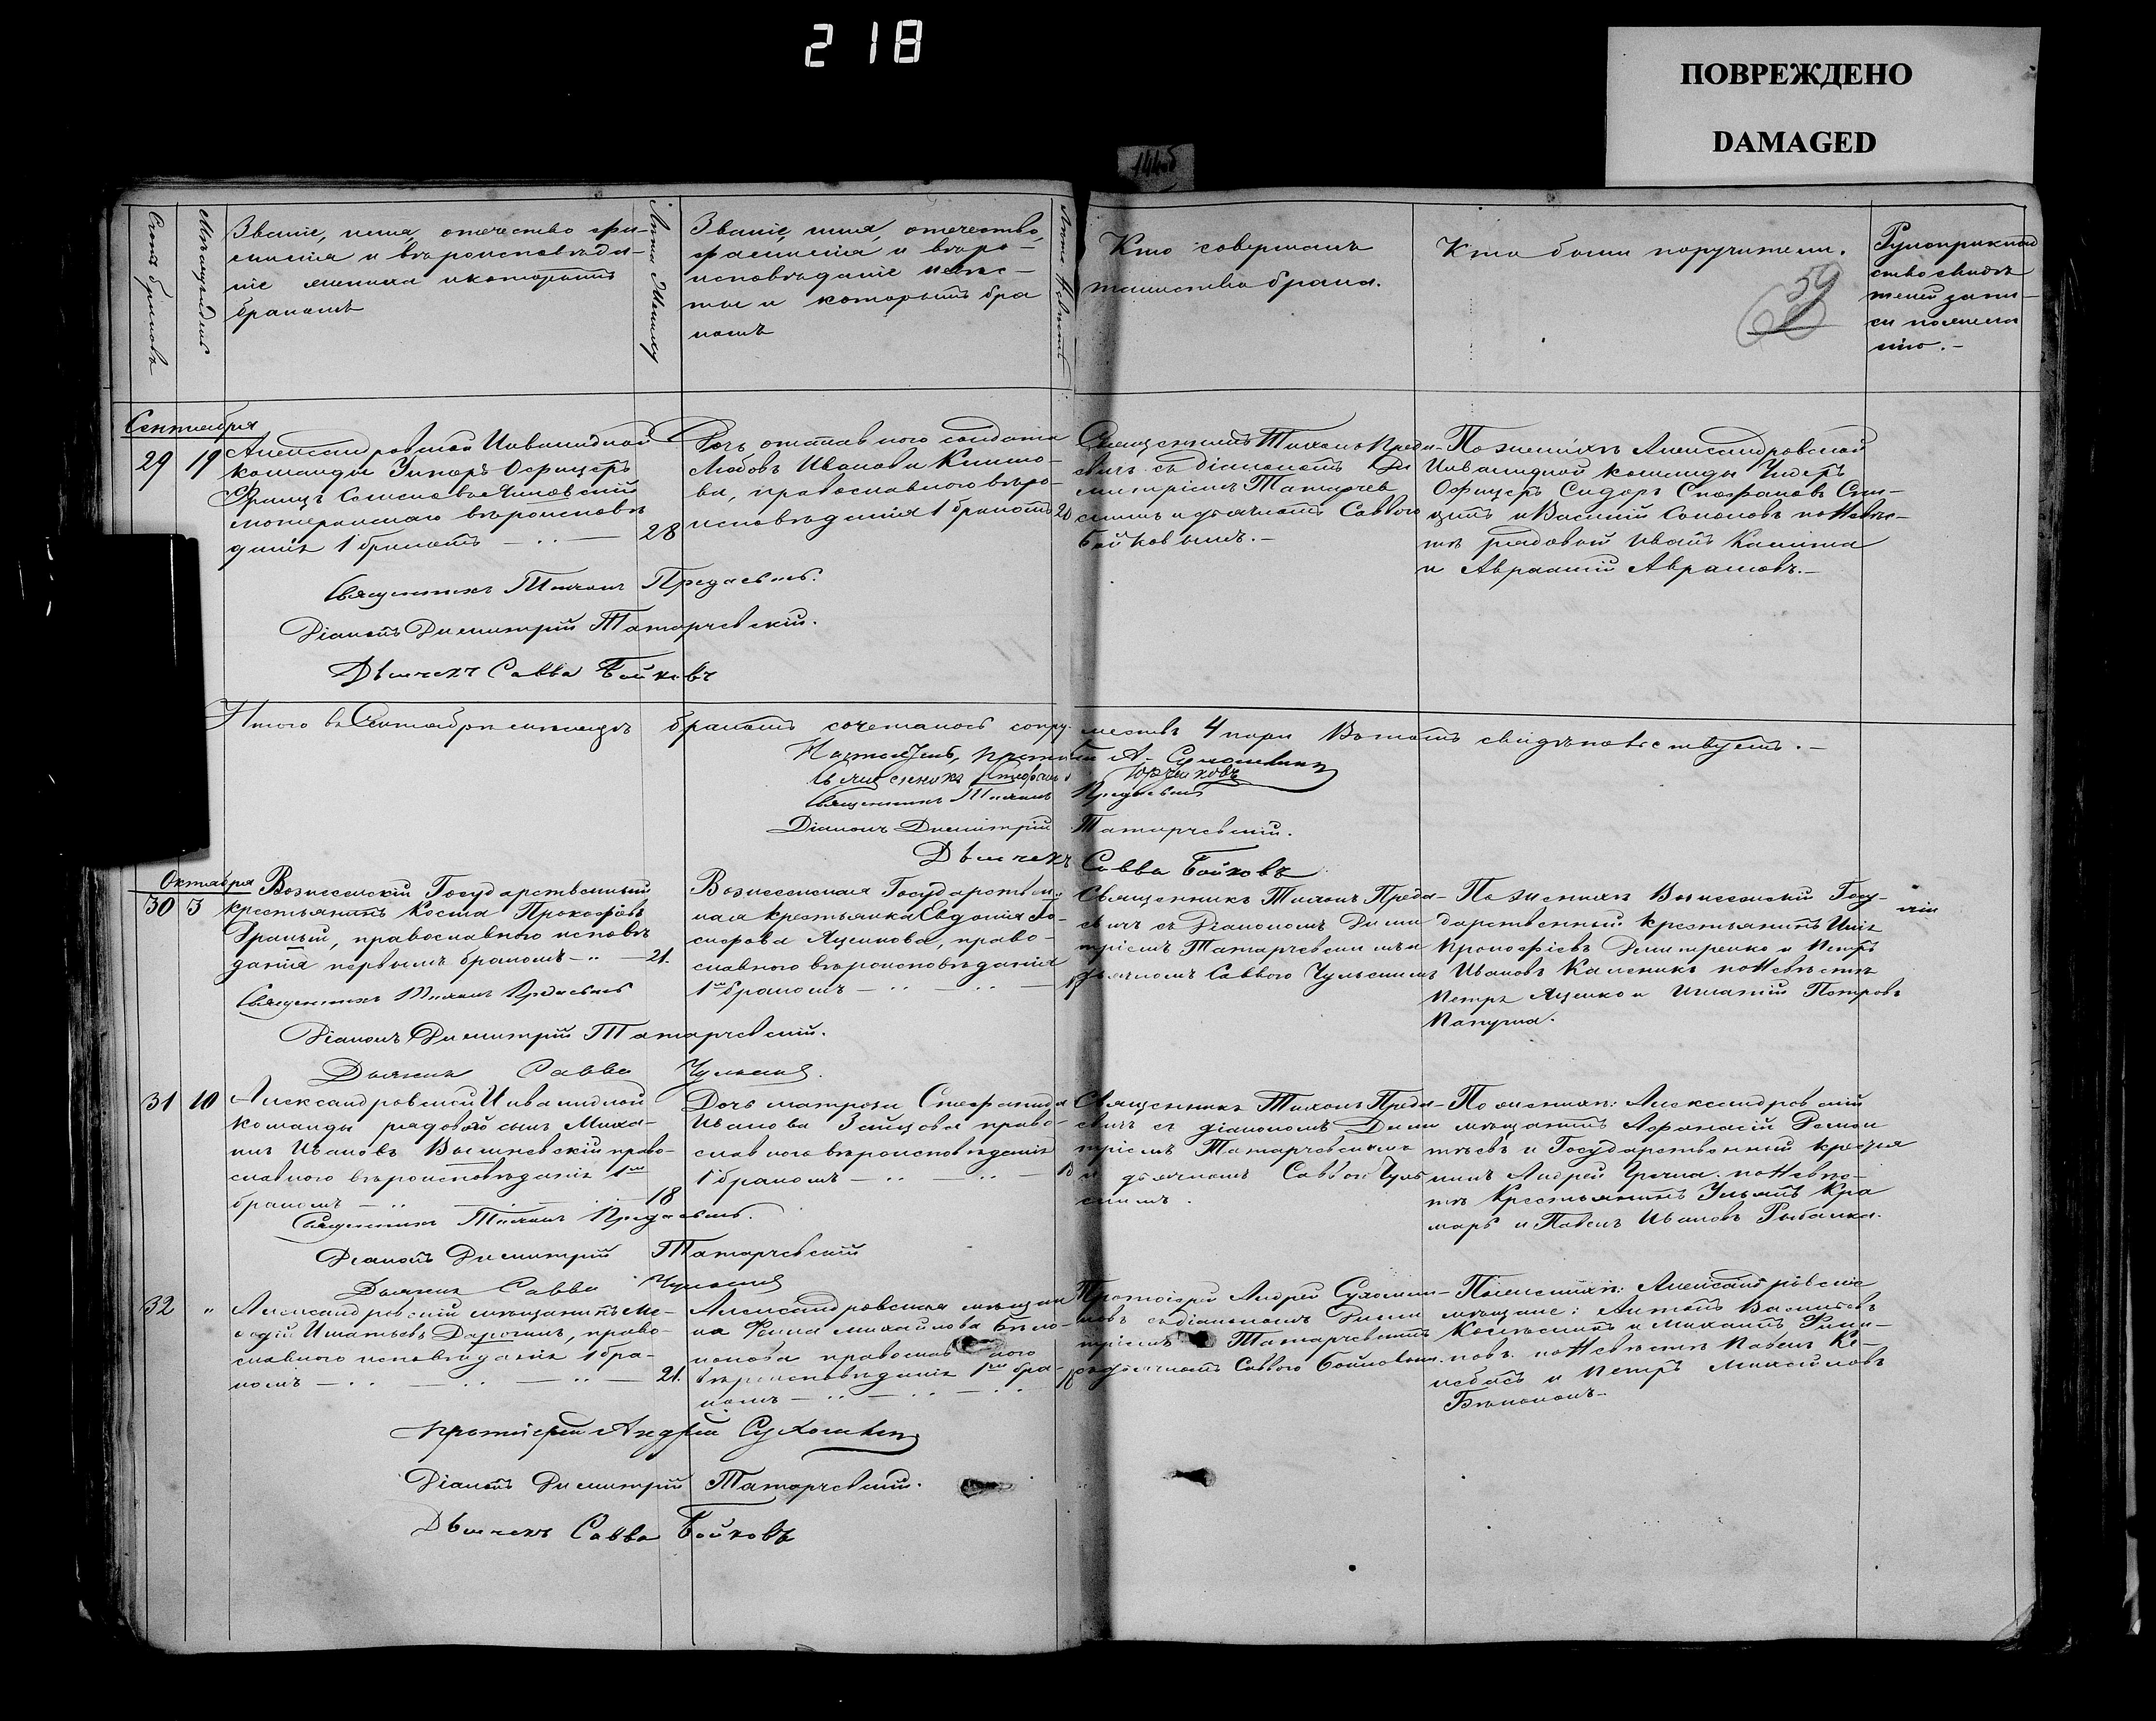 218
ПОВРЕЖДЕНО
DAMAGED
144об
Счетъ браковъ
Мѣсяцъ и день
Званіе, имя, отечество фа-
милія и вѣроисповѣда-
ніе жениха и которымъ
бракомъ
Лѣта Жениху
Званіе, имя, отечество,
фамилія и вѣро-
исповѣданіе невѣс-
ты и которымъ бра
комъ
Лѣта Невѣсты
Кто совершалъ
таинство брака.
Кто были поручители.
59
Рукоприклад
ство свидѣ
телей запи-
си по желан
ію.-
Сентября
29 19
Александровской Инвалидной
команды Унтеръ Офицеръ
Францъ
лютеранскаго вѣроисповѣ
данія 1 бракомъ
28
Дочь отставного солдата
Любовь Иванова Климо-
ва, православного вѣро-
исповѣданія 1 бракомъ
20
Священникъ Тихонъ Преда-
евичъ съ діакономъ Ди
митріемъ Татарчев
скимъ и дьячкомъ Саввою
Бойковымъ.-
По женихѣ Александровской
Инвалидной команды Унтеръ
Офицеръ Сидоръ Стефановъ
и Василій по Невѣс-
тѣ рядовой Иванъ Калина
и Авраамій Аврамовъ.-
Священникъ Тихонъ Предаевичъ.
Діаконъ Димитрій Татарчевскій.
Дьячекъ Савва Бойковъ
Итого въ Сентябрѣ мѣсяцѣ бракомъ сочеталось супружествъ 4 пары Въ томъ свидѣтельствуемъ.-
Настоятель, протоіерей А. Сухомлинъ
Священникъ Стефанъ Юрчиковъ
Священникъ Тихонъ Предаевичъ
Діаконъ Димитрій Татарчевскій.
Дьячекъ Савва Бойковъ
Октября
30 3
Вознесенскій Государственный
крестьянинъ Косма Прокофіевъ
православного исповѣ
данія первымъ бракомъ
21.
Вознесенская Государствен-
ная крестьянка Евдокія Іо-
сифова Яценкова, право-
славного вѣроисповѣданія
1мъ бракомъ
Священникъ Тихонъ Преда-
евичъ съ Діакономъ Дими
тріемъ Татарчевскимъ и
дьячкомъ Саввою Чульскимъ
По женихѣ Вознесенскій Госу-
дарственный крестьянинъ Илія
Прокофіевъ Дмитренко и Петръ
Ивановъ Каленикъ по Невѣстѣ
Петръ Яценко и Игнатій Петровъ
Папуша.
Священникъ Тихонъ Предаевичъ
Діаконъ Димитрій Татарчевскій.
Дьячекъ Савва Чульскій.
31 10
Александровской Инвалидной
команды рядовой сынъ Миха-
илъ Ивановъ Вишневскій право-
славного вѣроисповѣданія 1мъ
бракомъ
18
Дочь матроса Стефанида
Иванова Зайцова право-
славного вѣроисповѣданія
1 бракомъ
Священникъ Тихонъ Преда-
евичъ съ діакономъ Дими
тріемъ Татарчевскимъ
и дьячкомъ Саввой Чуль
скимъ.
По женихѣ: Александровскій
мѣщанинъ Афанасій Демен
тьевъ и Государственный крестья
нинъ Андрей по Невѣс-
тѣ Крестьянинъ Ульянъ Кра
маръ и Павелъ Ивановъ Рыбалка.
Священникъ Тихонъ Предаевичъ.
Діаконъ Димитрій Татарчевскій
Дьячекъ Савва Чульскій
32 "
Александровскій мѣщанинъ Ме-
ѳодій Игнатьевъ право-
славного исповѣданія 1 бра-
комъ
21.
Александровская мѣщан
ка Михайлова Бѣло-
конова православного
вѣроисповѣданія 1мъ бра-
комъ
Протоіерей Андрей Сухомли-
новъ съ діакономъ Дими
тріемъ Татарчевскимъ
дьячкомъ Саввою Бойковым.
По женихѣ: Александровскіе
мѣщане: Антонъ Васильевъ
Колѣсникъ и Михаилъ Фили-
повъ. по Невѣстѣ Павелъ Ке-
лебасъ и Петръ Михайловъ
Бѣлоконъ.-
протоіерей Андрей Сухомлинъ
Діаконъ Димитрій Татарчевскій.
Дьячекъ Савва Бойковъ